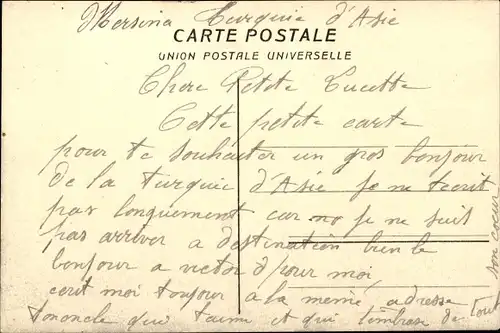 Mersina Turquie d'Asie
CARTE POSTALE
UNION POSTALE UNIVERSELLE
Chere Petite Lucette
Cette petite carte
pour te souhaiter un gros bonjour
de la turquie d'Asie je ne tecrit
pas longuement car je ne suit
pas arriver a destination bien le
bonjour a victor d pour moi
ecrit moi toujour a la meme adresse
tononcle qui taime et qui tembrase de tout
son coeur